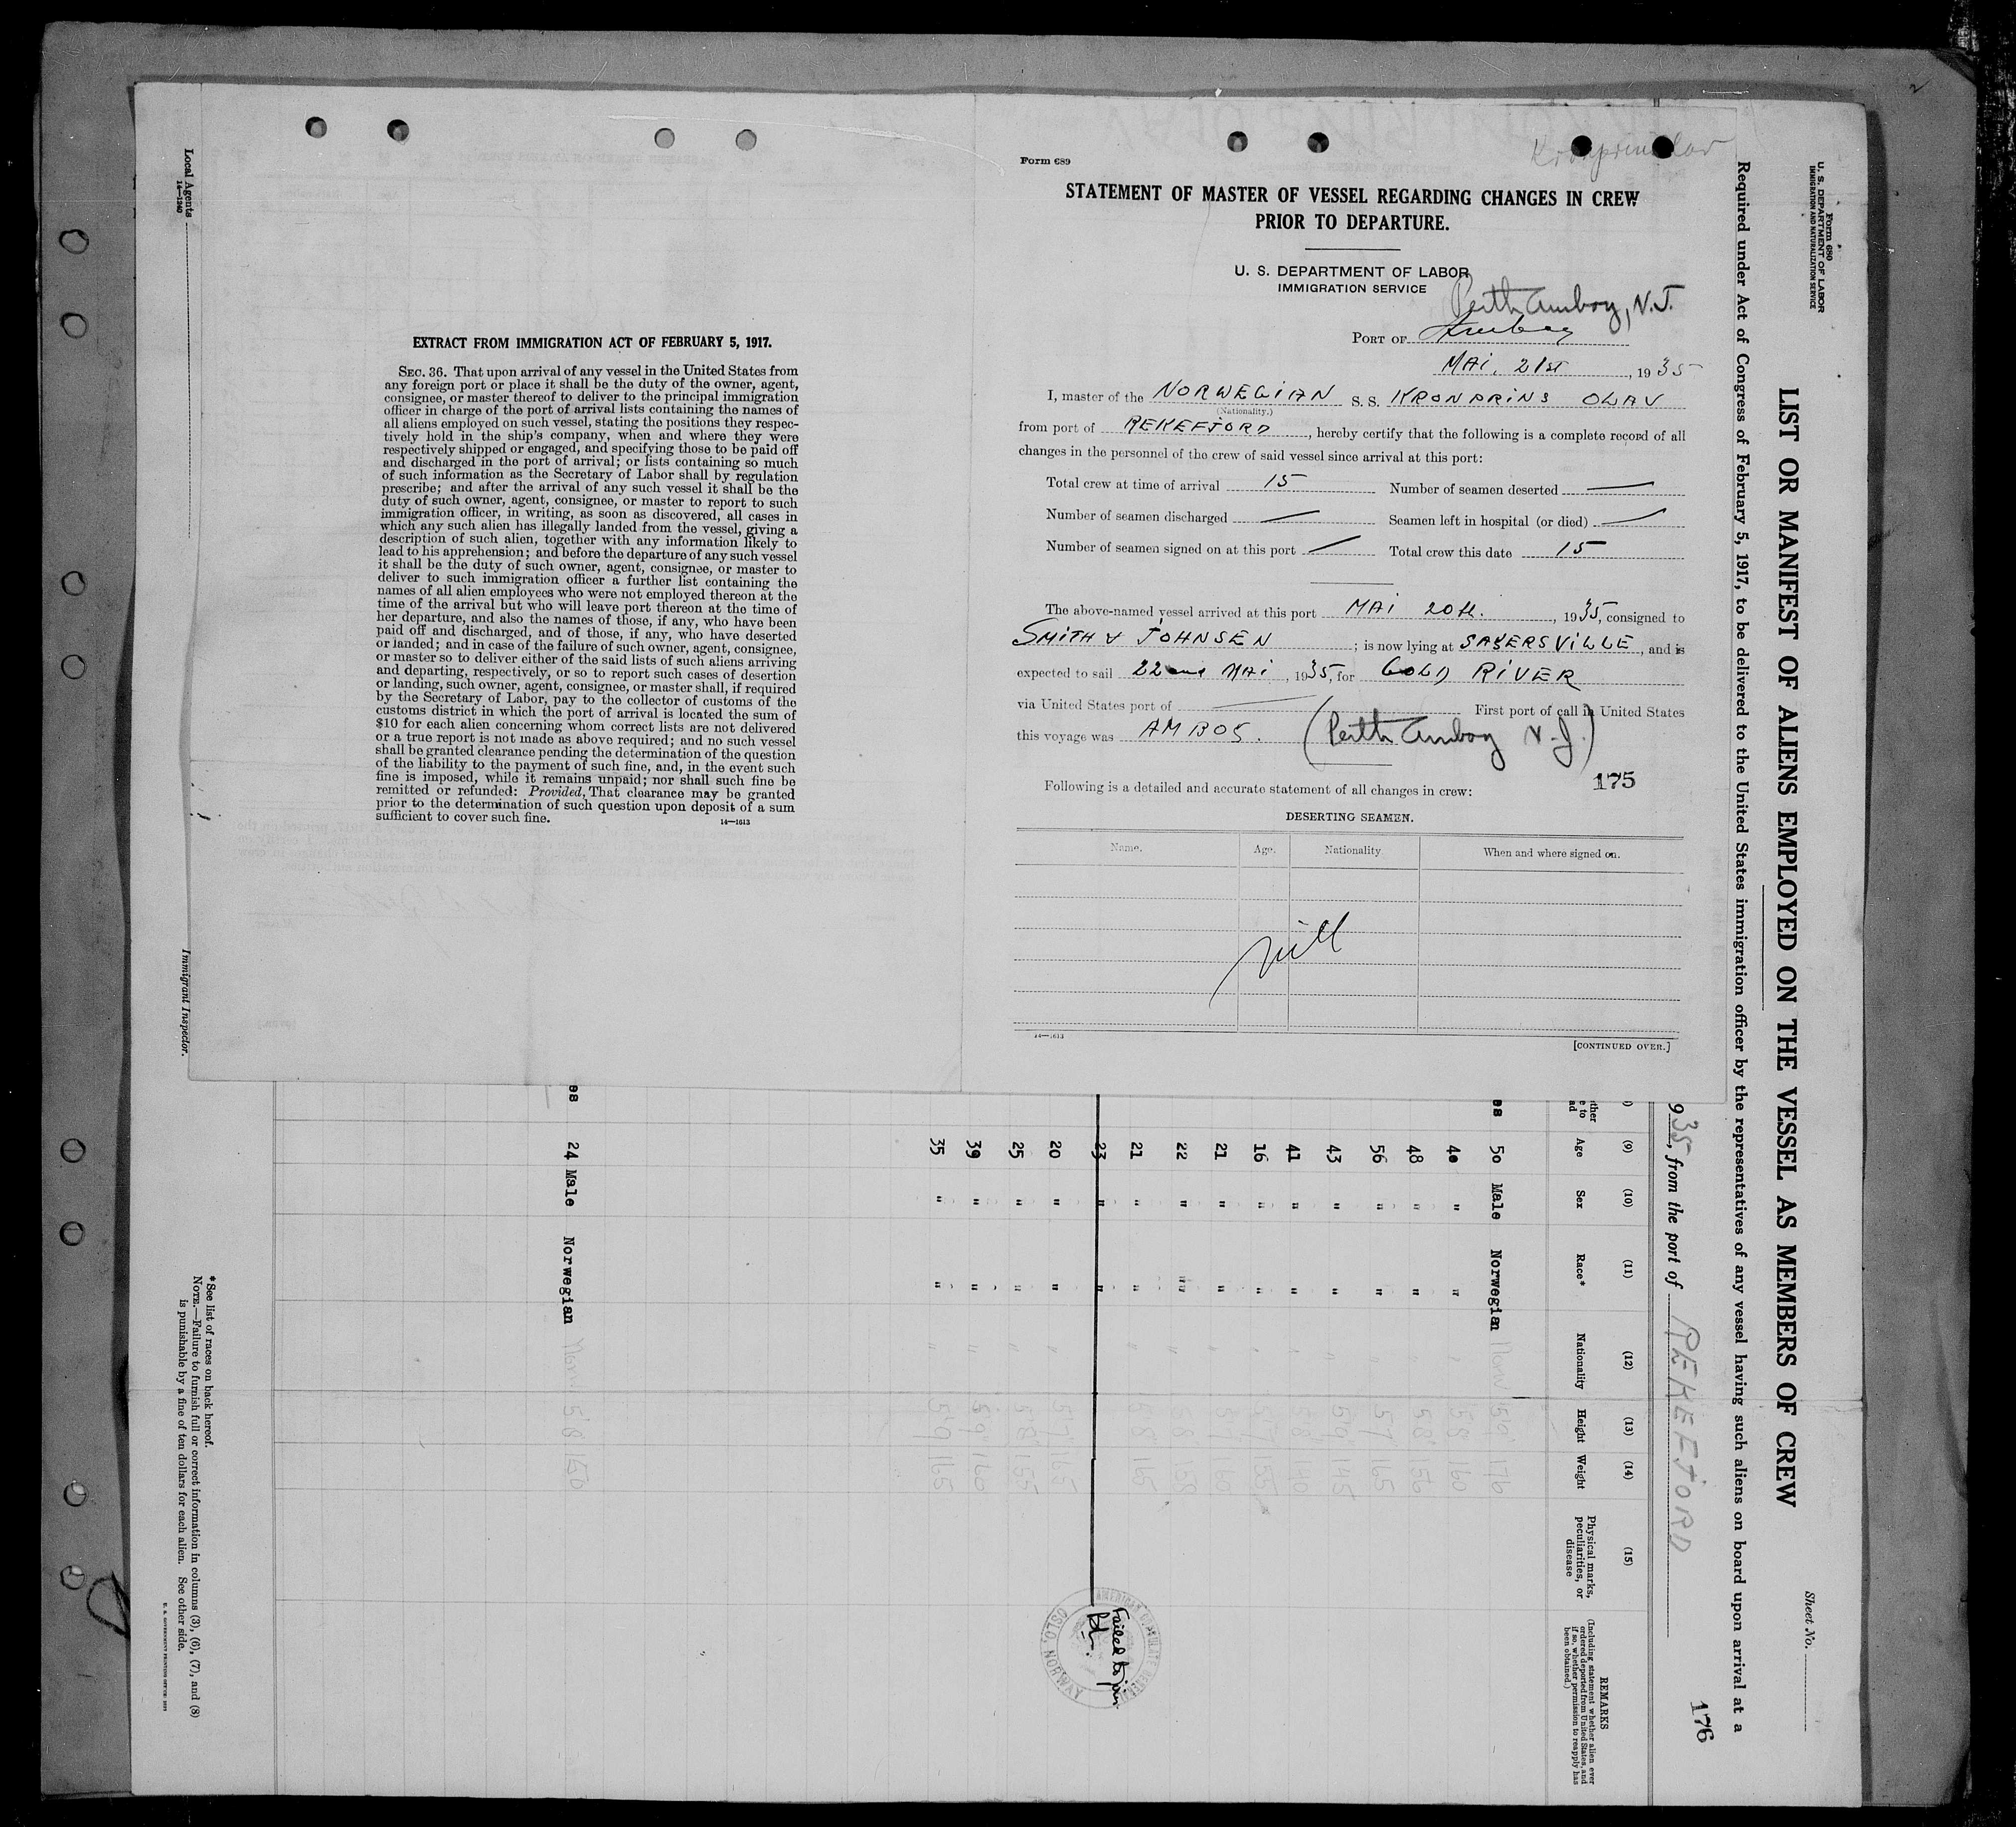 Local Agents
14—1240
Immigrant Inspector.
EXTRACT FROM IMMIGRATION ACT OF FEBRUARY 5, 1917.
SEC. 36. That upon arrival of any vessel in the United States from
any foreign port or place it shall be the duty of the owner, agent,
consignee, or master thereof to deliver to the principal immigration
officer in charge of the port of arrival lists containing the names of
all aliens employed on such vessel, stating the positions they respec-
tively hold in the ship's company, when and where they were
respectively shipped or engaged, and specifying those to be paid off
and discharged in the port of arrival; or lists containing so much
of such information as the Secretary of Labor shall by regulation
prescribe; and after the arrival of any such vessel it shall be the
duty of such owner, agent, consignee, or master to report to such
immigration officer, in writing, as soon as discovered, all cases in
which any such alien has illegally landed from the vessel, giving a
description of such alien, together with any information likely to
lead to his apprehension; and before the departure of any such vessel
it shall be the duty of such owner, agent, consignee, or master to
deliver to such immigration officer a further list containing the
names of all alien employees who were not employed thereon at the
time of the arrival but who will leave port thereon at the time of
her departure, and also the names of those, if any, who have been
paid off and discharged, and of those, if any, who have deserted
or landed; and in case of the failure of such owner, agent, consignee,
or master so to deliver either of the said lists of such aliens arriving
and departing, respectively, or so to report such cases of desertion
or landing, such owner, agent, consignee, or master shall, if required
by the Secretary of Labor, pay to the collector of customs of the
customs district in which the port of arrival is located the sum of
$10 for each alien concerning whom correct lists are not delivered
or a true report is not made as above required; and no such vessel
shall be granted clearance pending the determination of the question
of the liability to the payment of such fine, and, in the event such
fine is imposed, while it remains unpaid; nor shall such fine be
remitted or refunded: Provided, That clearance may be granted
prior to the determination of such question upon deposit of a sum
sufficient to cover such fine.
14—1613
Form 689
STATEMENT OF MASTER OF VESSEL REGARDING CHANGES IN CREW
PRIOR TO DEPARTURE.
U. S. DEPARTMENT OF LABOR
IMMIGRATION SERVICE
Perth Amboy, N.J.
PORT OF Amboy
MAI. 21st, 1935
I, master of the NORWEGIAN S. S. KRONPRINS OLAV
(Nationality.)
from port of REKEFJORD, hereby certify that the following is a complete record of all
changes in the personnel of the crew of said vessel since arrival at this port:
Total crew at time of arrival 15 Number of seamen deserted —
Number of seamen discharged — Seamen left in hospital (or died) —
Number of seamen signed on at this port — Total crew this date 15
The above-named vessel arrived at this port MAI 20th., 1935, consigned to
SMITH & JOHNSEN; is now lying at SAYERSVILLE, and is
expected to sail 22end MAI, 1935, for GOLD RIVER
via United States port of — First port of call in United States
this voyage was AMBOY. (Perth Amboy N.J.)
175
Following is a detailed and accurate statement of all changes in crew:
DESERTING SEAMEN.
Name. Age. Nationality When and where signed on.
nill
14—1613
[CONTINUED OVER.]
Form 680
U. S. DEPARTMENT OF LABOR
IMMIGRATION AND NATURALIZATION SERVICE
Sheet No.
LIST OR MANIFEST OF ALIENS EMPLOYED ON THE VESSEL AS MEMBERS OF CREW
Required under Act of Congress of February 5, 1917, to be delivered to the United States immigration officer by the representatives of any vessel having such aliens on board upon arrival at a
176
935, from the port of REKEFJORD
(9) (10) (11) (12) (13) (14) (15)
Age Sex Race* Nationality Height Weight Physical marks, peculiarities, or disease
REMARKS
(Including statement whether alien ever ordered deported from United States, and if so, whether permission to reapply has been obtained.)
50 Male Norwegian Norw 170
40 " " " 58 160
48 " " " 58 150
56 " " " 57 165
43 " " " 59 145
41 " "
16 " " 155
21 " "
22 " "
21 " " " 58 165
23 " " Failed to join
20 " " " 57 165
25 " " " 58 155
39 " " " 59 160
35 " " " 165
24 Male Norwegian Norw 58 150
AMERICAN CONSULATE GENERAL
OSLO, NORWAY
* See list of races on back hereof.
NOTE.—Failure to furnish full or correct information in columns (3), (6), (7), and (8)
is punishable by a fine of ten dollars for each alien. See other side.